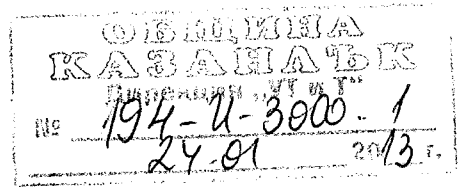 ОБЩИНА
КАЗАНЛЪК
Дирекция „УТ и Т“
№ 194-И-3000.1
24.01 2013 г.